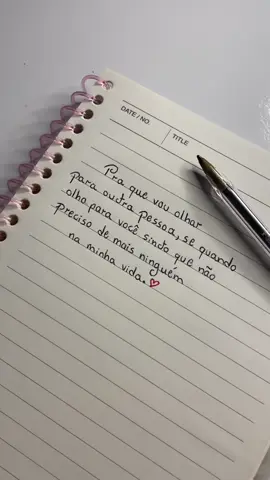 DATE / NO.
TITLE
Pra que vou olhar
para outra pessoa, se quando
olho para você sinto que não
preciso de mais ninguém
na minha vida.